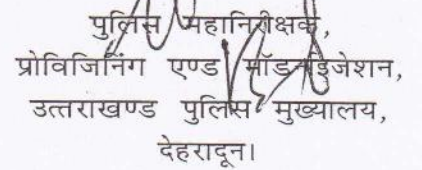 पुलिस महानिरीक्षक,
प्रोविजिनिंग एण्ड मॉडर्नाइजेशन,
उत्तराखण्ड पुलिस मुख्यालय,
देहरादून।